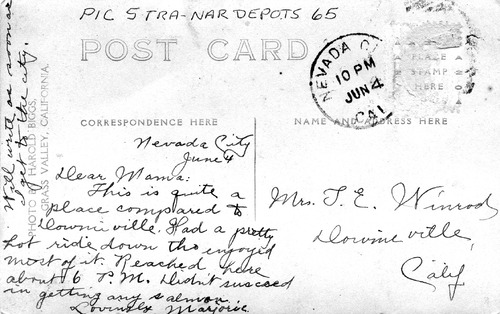 PIC 5 TRA-NAR DEPOTS 65
POST CARD
NEVADA CI
10 PM
JUN 4
CAL
PLACE
STAMP
HERE
CORRESPONDENCE HERE
NAME AND ADDRESS HERE
Nevada City
June 4
Dear Mama:
This is quite a
place compared to
Downieville. Had a pretty
hot ride down tho enjoyed
most of it. Reached here
about 6 P.M. Didn't succeed
in getting any salmon.
Lovingly Marjorie
Will write as soon as
I get to the city.
PHOTO BY HAROLD BIGGS.
GRASS VALLEY, CALIFORNIA.
Mrs. T. E. Winrod
Downieville,
Calif